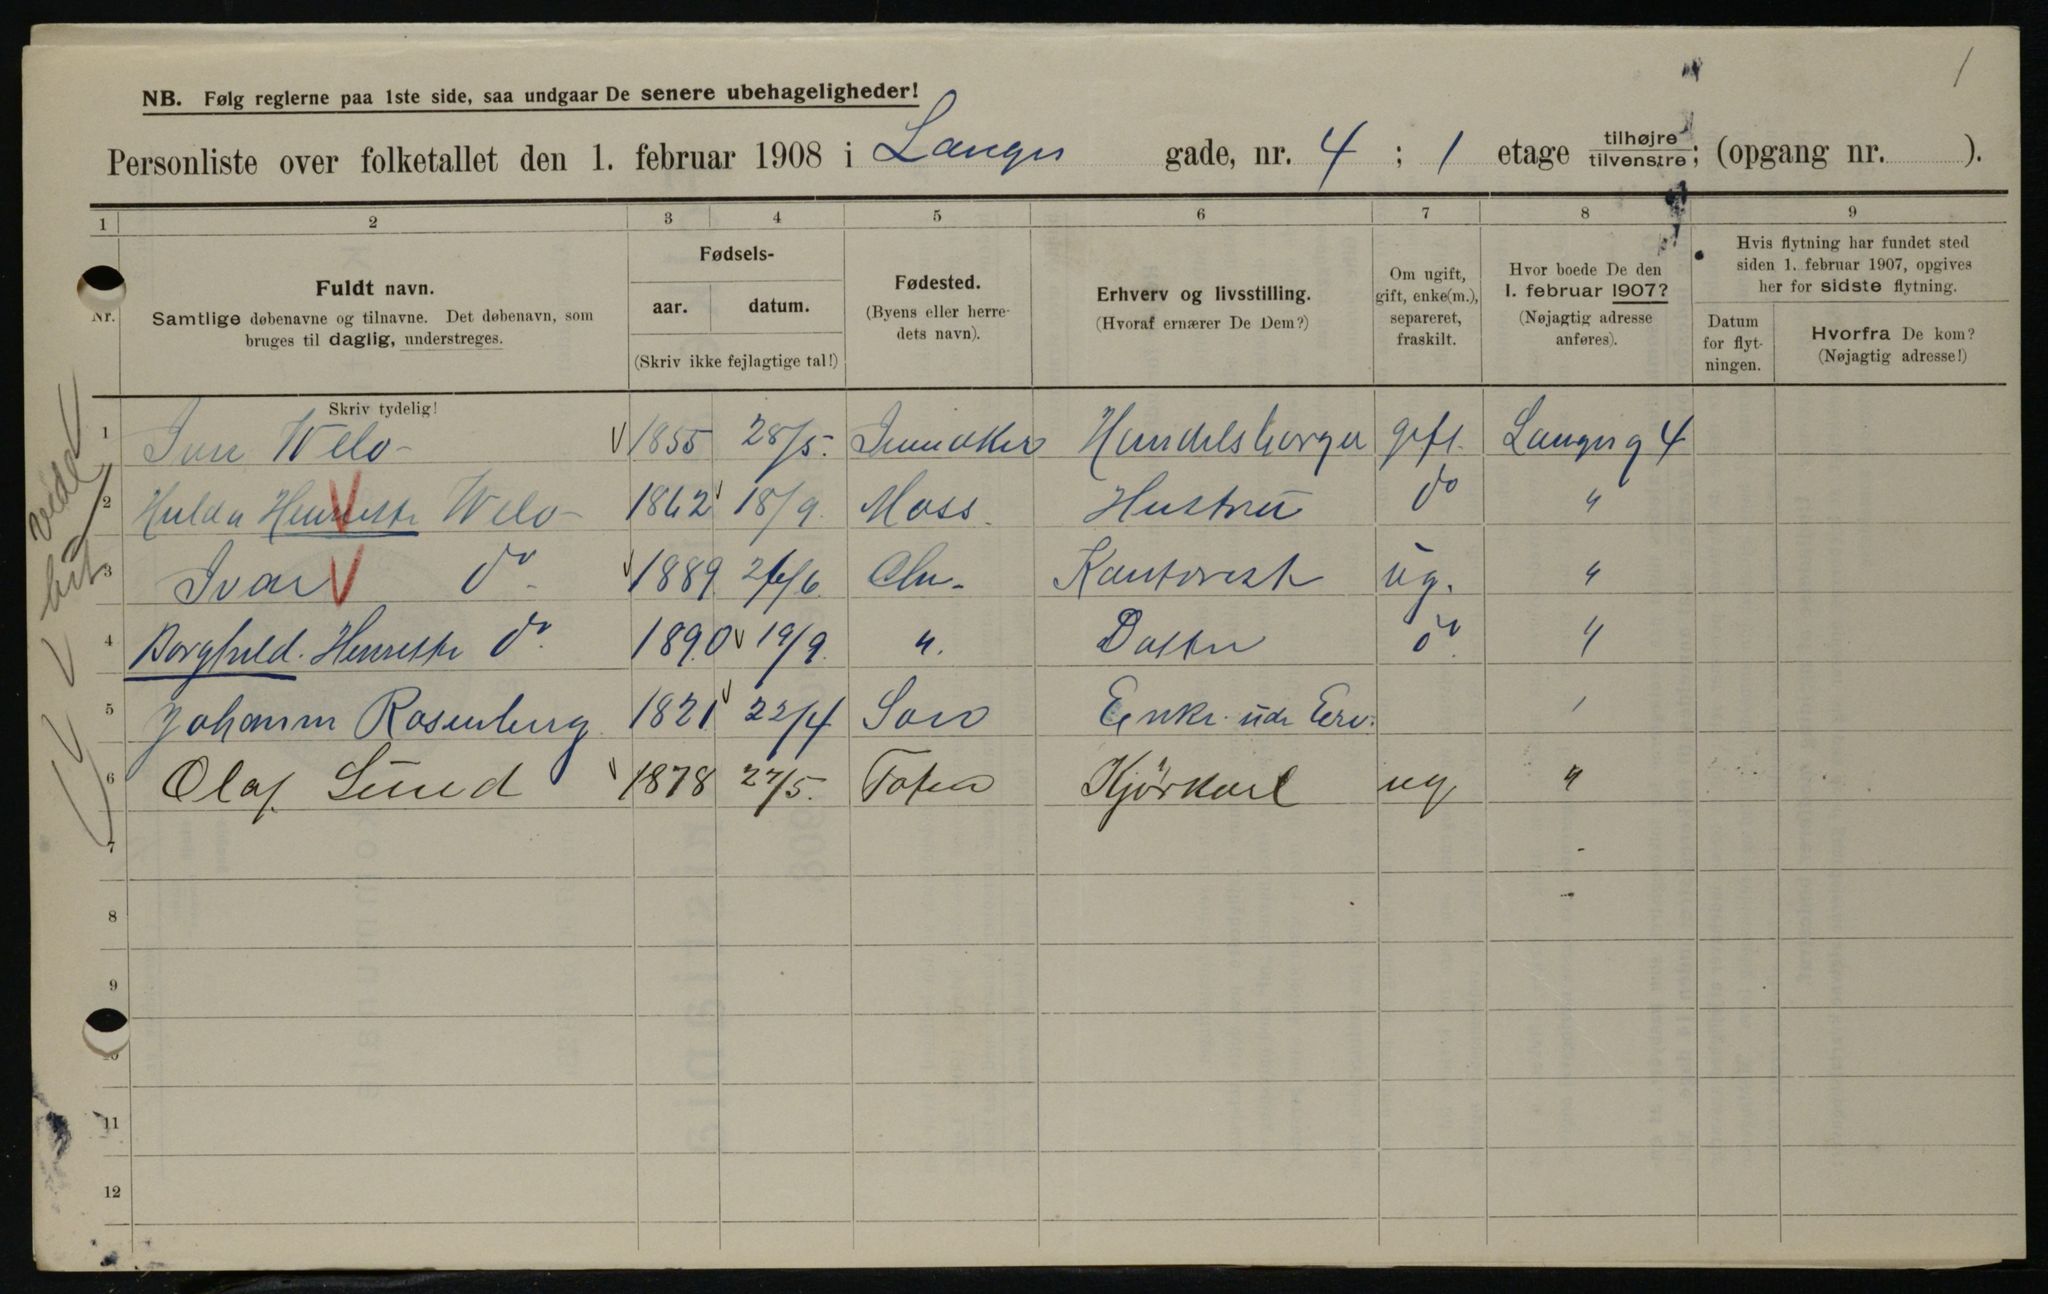 1
NB. Følg reglerne paa 1ste side, saa undgaar De senere ubehageligheder!
Personliste over folketallet den 1. februar 1908 i Langes gade, nr. 4 ; 1 etage tilhøjre tilvenstre; (opgang nr. ).
1 2 3 4 5 6 7 8 9
Nr.
Fuldt navn.
Samtlige døbenavne og tilnavne. Det døbenavn, som
bruges til daglig, understreges.
Skriv tydelig!
Fødsels-
aar. datum.
(Skriv ikke fejlagtige tal!)
Fødested.
(Byens eller herre-
dets navn).
Erhverv og livsstilling.
(Hvoraf ernærer De Dem?)
Om ugift,
gift, enke(m.),
separeret,
fraskilt.
Hvor boede De den
1. februar 1907?
(Nøjagtig adresse
anføres).
Hvis flytning har fundet sted
siden 1. februar 1907, opgives
her for sidste flytning.
Datum
for flyt-
ningen.
Hvorfra De kom?
(Nøjagtig adresse!)
1 Welo 1855 28/5. Handelsborger gift. Langesg 4
2 Hulda Henrette Welo 1862 18/9. Moss. Hustru do "
3 Ivar do 1889 Chr. Kontorist ug. "
4 Borghild. Henrette do 1890 19/9. ". Datter do "
5 Johanne Rosenberg 1821 22/4 Enke. uden Erv.
6 Olaf Lund 1878 27/5. Toten Kjørkarl ug "
7
8
9
10
11
12